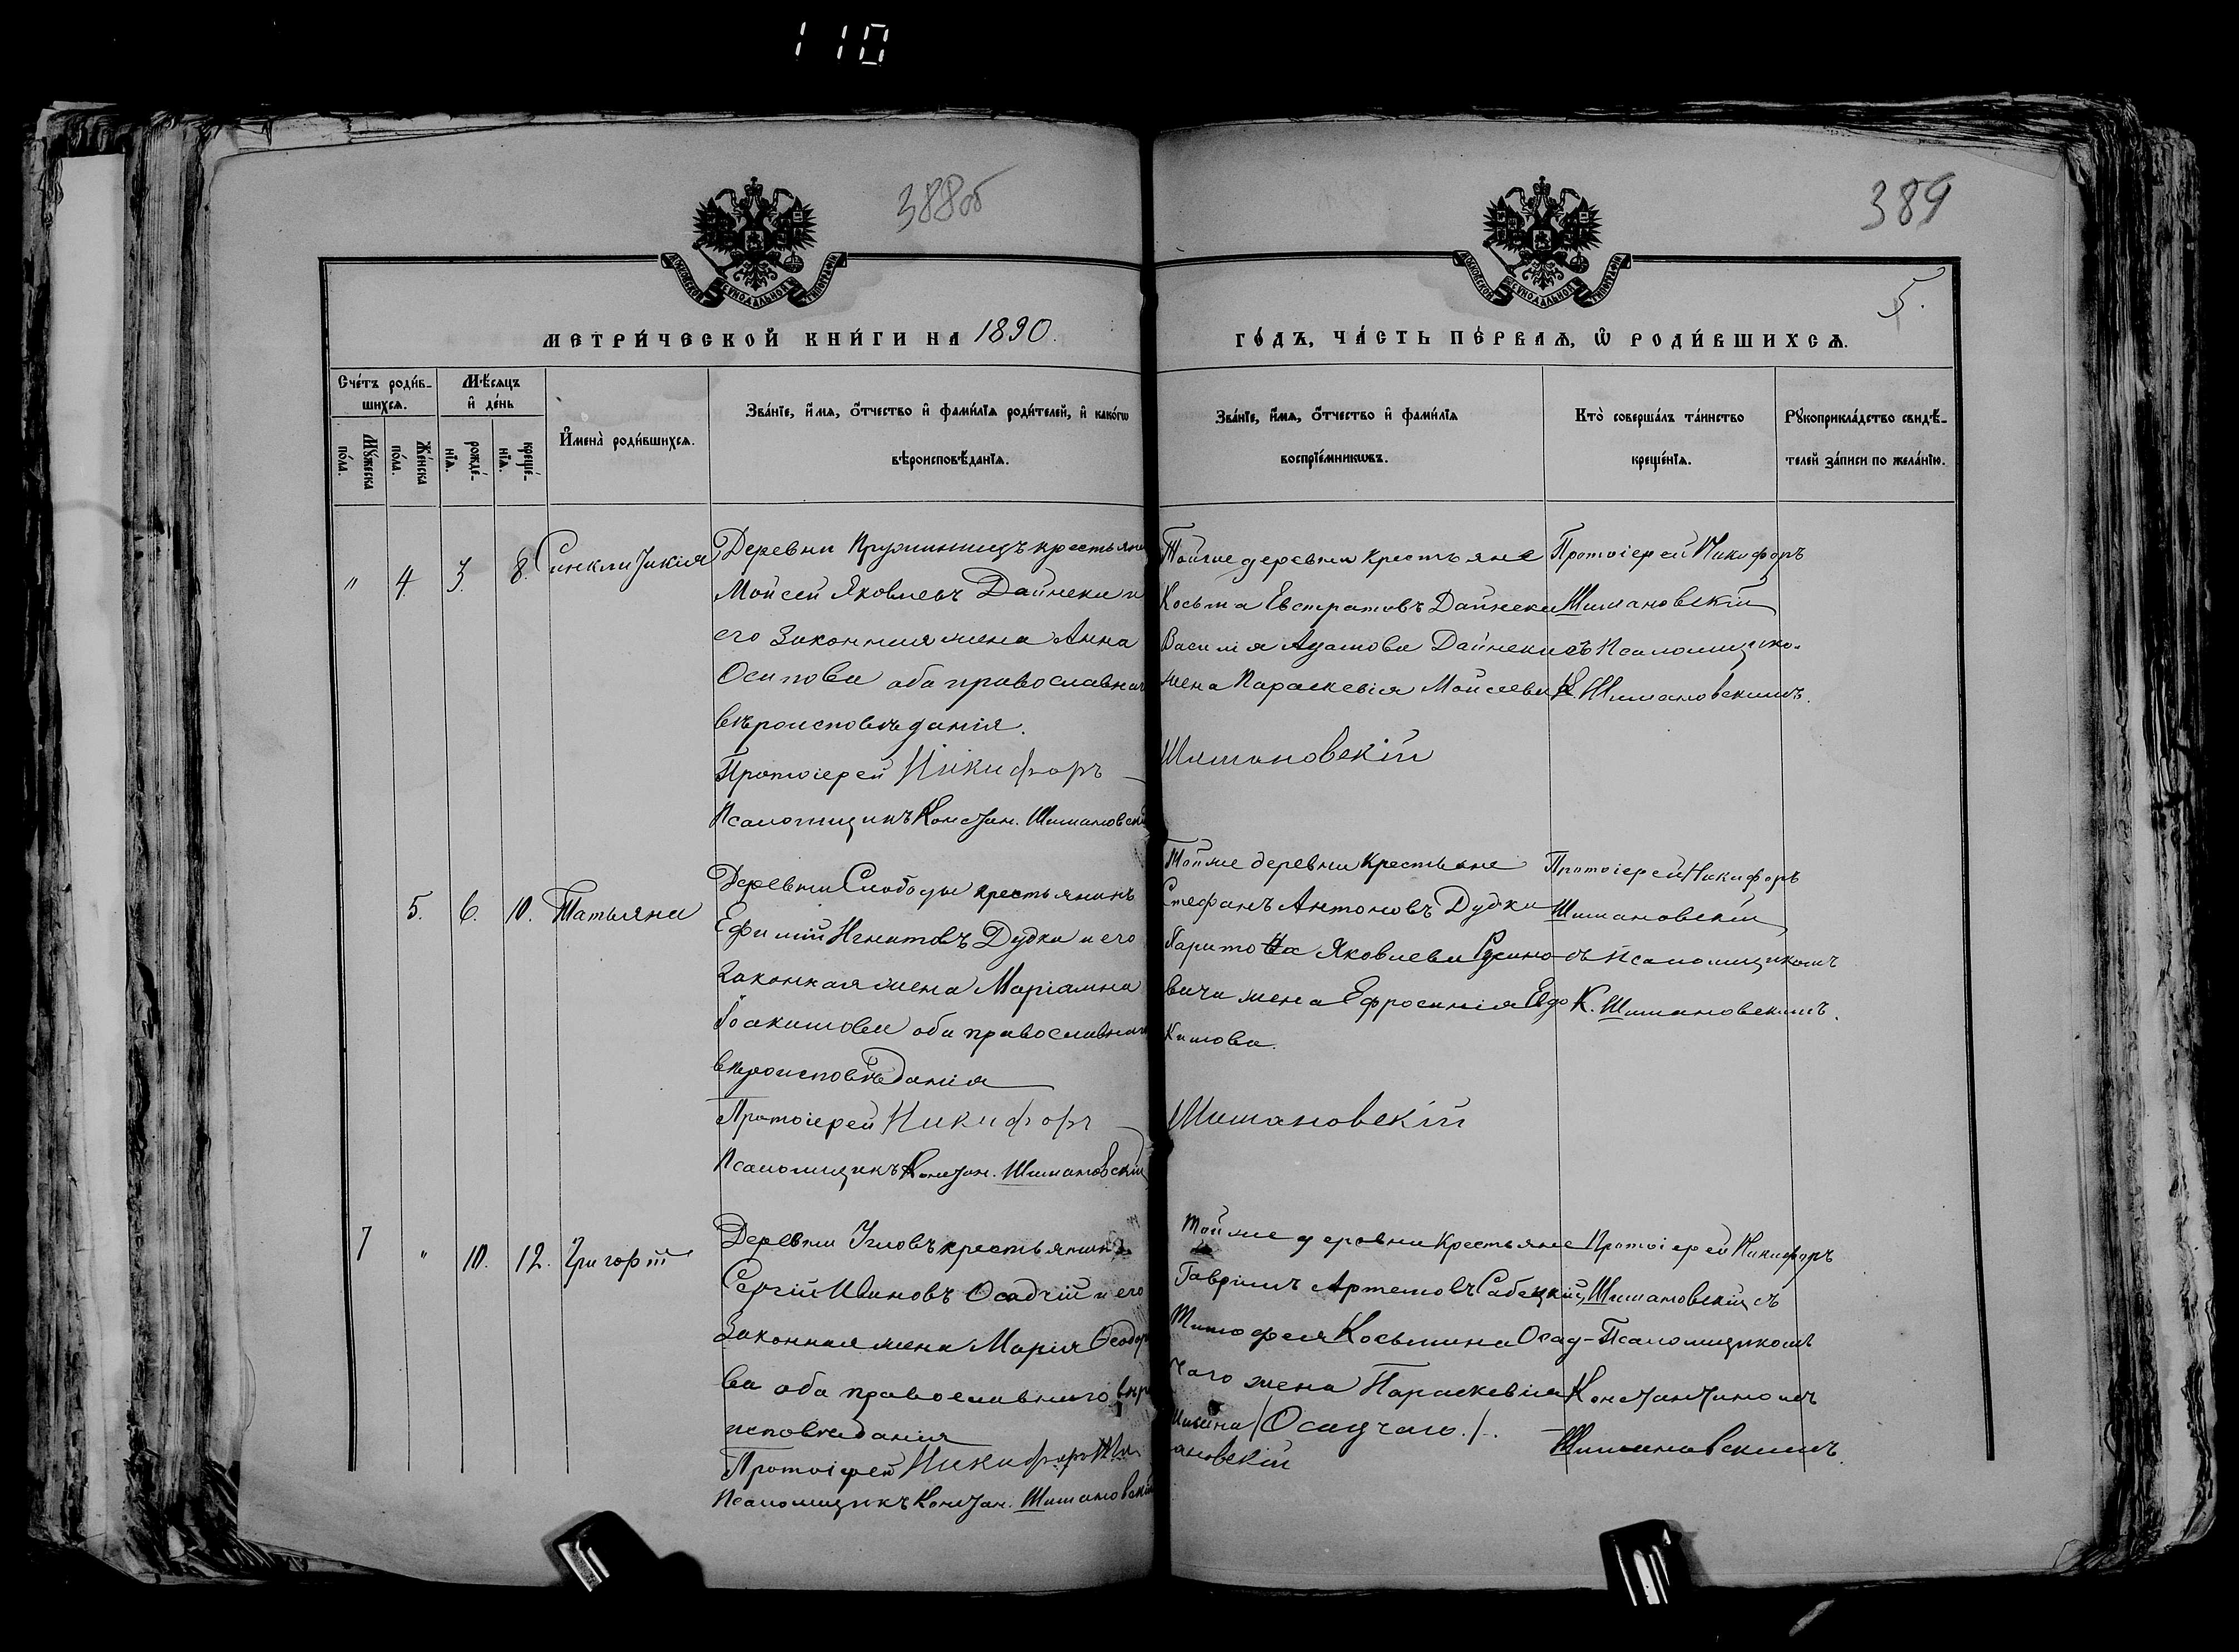 110
388об
389
5.
МОСКОВСКОЙ СѴНОДАЛЬНОЙ ТИПОГРАФІИ
МОСКОВСКОЙ СѴНОДАЛЬНОЙ ТИПОГРАФІИ
МЕТРИ́ЧЕСКОЙ КНИ́ГИ НА 1890.
ГО́ДЪ, ЧА́СТЬ ПЕ́РВАѦ, Ѡ҆ РОДИ́ВШИХСѦ.
Сче́тъ роди́в-
шихсѧ.
Мѣ́сѧцъ
и҆ де́нь
Мꙋ́жеска
по́ла.
Же́нска
по́ла.
рожде́-
нїѧ.
креще́-
нїѧ.
И҆мена̀ роди́вшихсѧ.
Зва́нїе, и҆́мѧ, ѻ҆́тчество и҆ фами́лїѧ роди́телей, и҆ како́гѡ
вѣроисповѣ́данїѧ.
Зва́нїе, и҆́мѧ, ѻ҆́тчество и҆ фами́лїѧ
воспрїе́мникѡвъ.
Кто̀ соверша́лъ та́инство
креще́нїѧ.
Рꙋкоприкла́дство свидѣ́-
телей за́писи по жела́нїю.
" 4. 3. 8. Синклитикія
Деревни крестьяни
Мойсей Яковлевъ Дайнеки и
его законная жена Анна
Осипова оба православнаго
вѣроисповѣданія.
Протоіерей Никифоръ
Псаломщикъ Констан. Шимановскій
Тойже деревни крестьяне
Косьма Евстратовъ Дайнека
Василія Адамова Дайнеки
жена Параскевія Мойсеева
Шимановскій
Протоіерей Никифоръ
Шимановскій
съ Псаломщико.
К. Шимановскимъ.
5. 6. 10. Татьяна
Деревни Слободы крестьянинъ
Ефимій Игнатовъ Дудка и его
законная жена Маріамна
Іоакимова оба православнаго
вѣроисповѣданія
Протоіерей Никифоръ
Псаломщикъ Констан. Шимановскій
Тойже деревни крестьяне
Стефанъ Антоновъ Дудка
Харитона Яковлева
вича жена Ефросинія Евдо
кимова.
Шимановскій
Протоіерей Никифоръ
Шимановскій
съ Псаломщикомъ
К. Шимановскимъ.
7 " 10. 12. Григорій
Деревни Угловъ крестьянинъ
Сергій Ивановъ Осадчій и его
законная жена Марія Ѳеодоро
ва оба православнаго вѣро
исповѣданія
Протоіерей Никифоръ Шим
Псаломщикъ Констан. Шимановскій
Тойже деревни крестьяне
Гавріилъ Артемовъ Сабецкій,
Тимофея Косьмина Осад-
чаго жена Параскевія
/Осадчаго./.
ановскій
Протоіерей Никифоръ
Шимановскій съ
Псаломщикомъ
Константиномъ
Шимановскимъ.